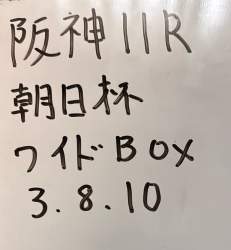 阪神11R
朝日杯
ワイドBOX
3.8.10